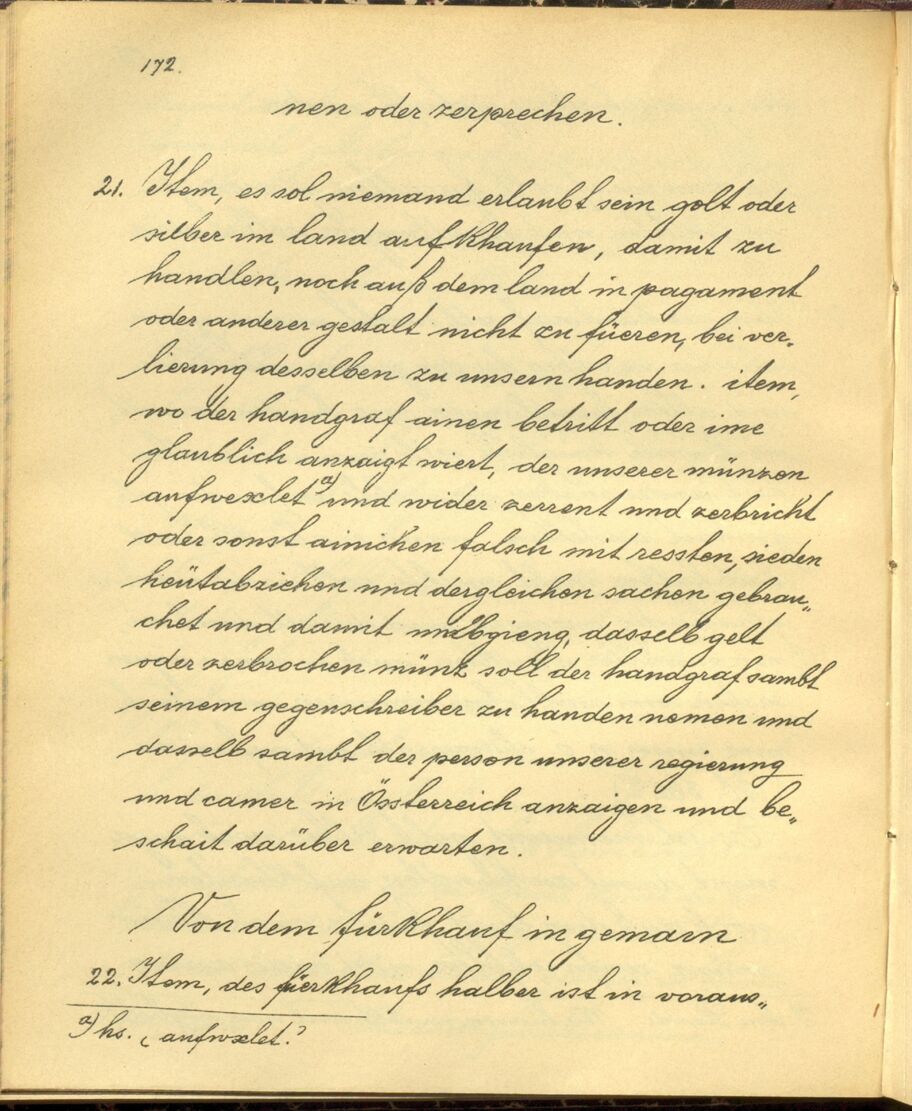 172.
nen oder zerprechen.
21. Item, es sol niemand erlaubt sein golt oder
silber im land aufkhaufen, damit zu
handlen, noch auß dem land in pagament
oder anderer gestalt nicht zu füeren, bei ver-
lierung desselben zu unsern handen. item,
wo der handgraf ainen betritt oder ime
glaublich anzaigt wiert, der unserer münzen
aufwexlet a) und wider zerrent und zerbricht
oder sonst ainichen falsch mit ressten, sieden
heütabziehen und dergleichen sachen gebrau„
chet und damit umbgieng, dasselb gelt
oder zerbrochen münz soll der handgraf sambt
seinem gegenschreiber zu handen nemen und
dasselb sambt der person unserer regierung
und camer in Össterreich anzaigen und be„
schait darüber erwarten.
Von dem fürkhauf in gemain
22. Item, des füerkhaufs halber ist in voraus„
a) hs. ‚aufwxlet.'